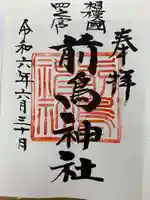 奉拝
相模國
四之宮
前鳥神社
令和六年六月三十日